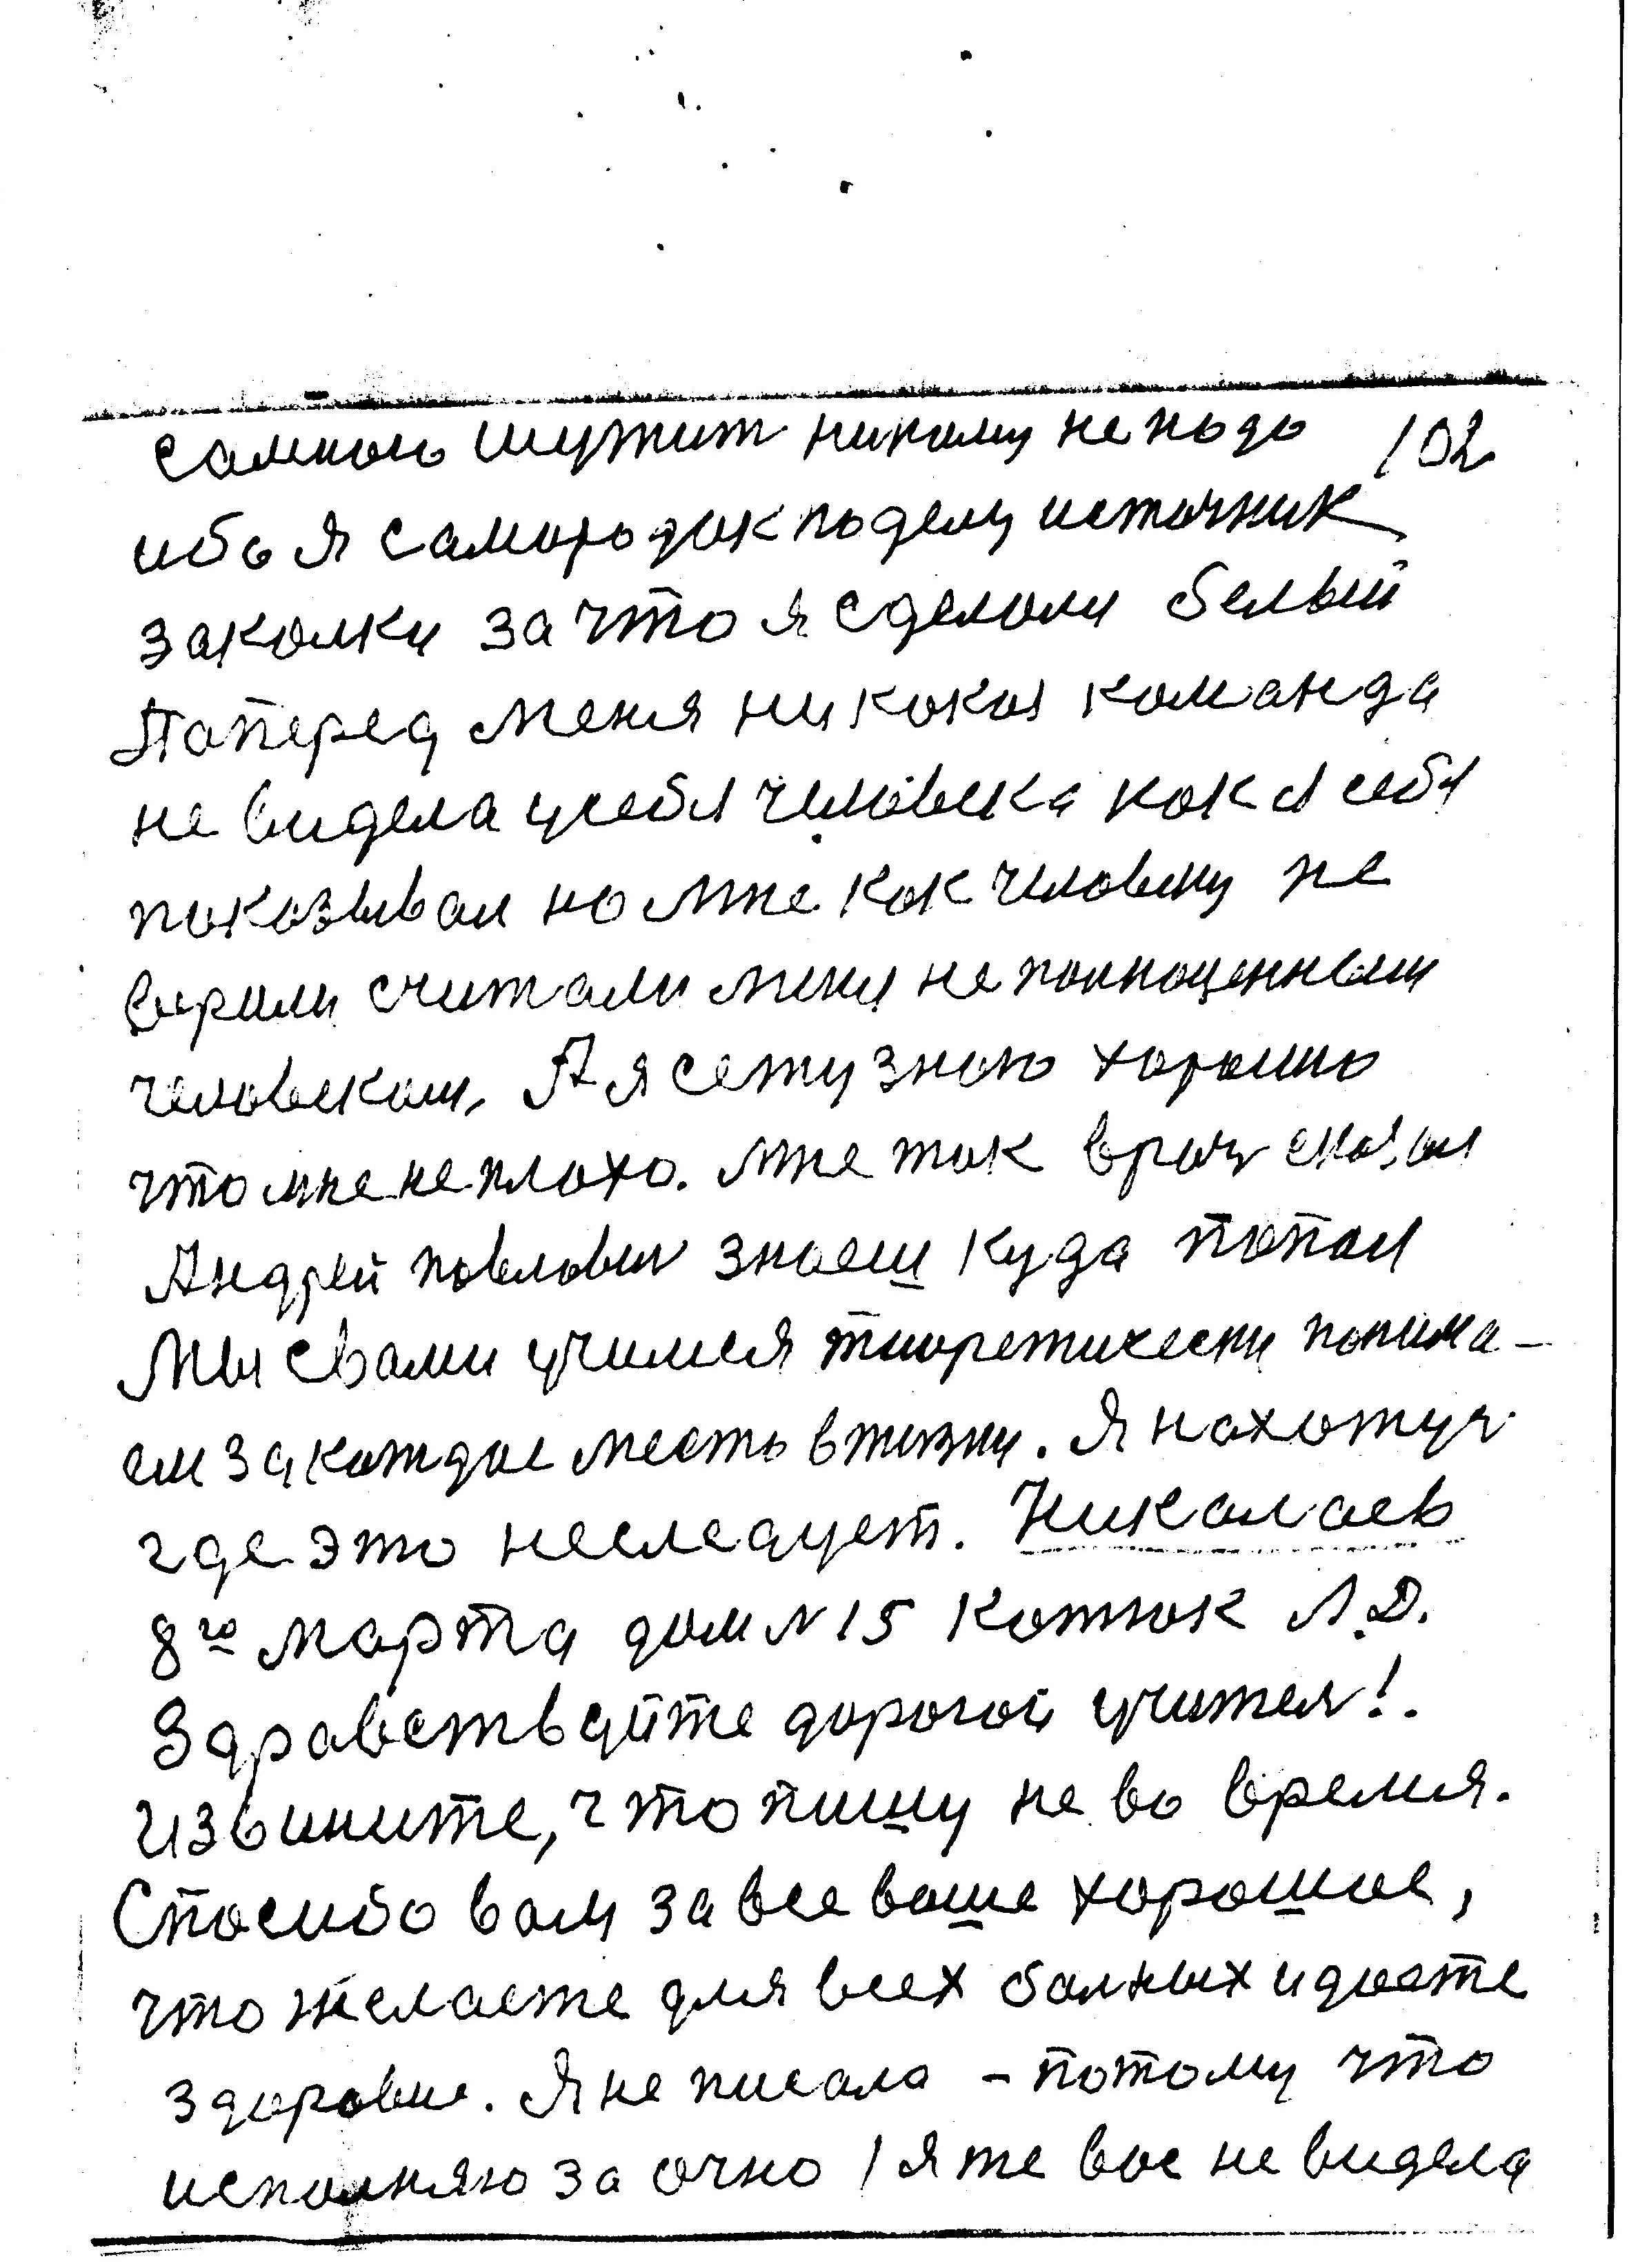 самною шутит никому не надо 102
ибо я самородак поделу источник
закалки за что я сделали белый
Паперед меня ни какая команда
не видела усебя человека как я себя
показывал но мне как человеку не
верили считали меня не полноценным
человекам. А я сежу знаю хорошо
что мне не плохо. Мне так врач сказал
Андрей павлович знаеш куда попал
Мы свами учимся тиоретически понима-
ем за каждае место в жизни. Я нахожуя
где это неследует. Никалаев
8го марта дом N 15 Котюк Л.Д.
Здравствуйте дорогой учител!.
Извините, что пишу не во время.
Спасибо вам за все ваше хорошое,
что желаете для всех балных и даете
здоровие. Я не писала - потому что
исполняю за очно / я же вас не видела